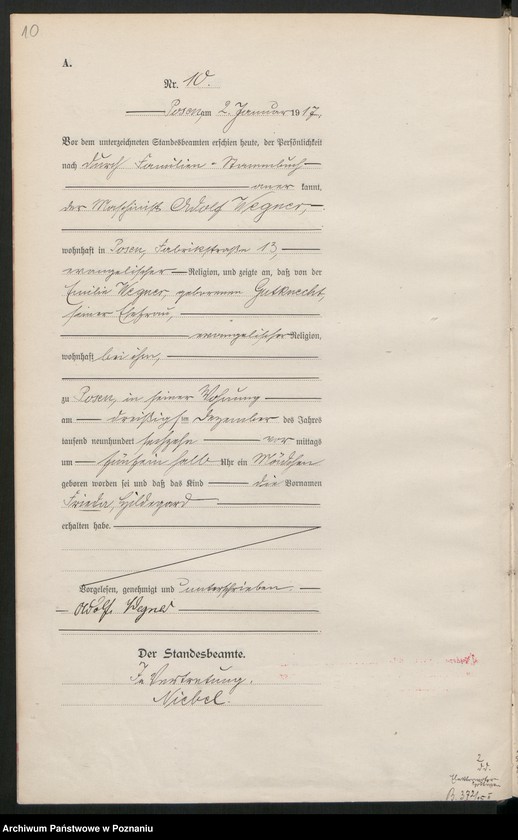 10
A.
Nr. 10.
Posen, am 2. Januar 1917.
Vor dem unterzeichneten Standesbeamten erschien heute, der Persönlichkeit
nach durch Familien-Stammbuch
aner kannt,
der Maschinist Adolf Wegner,
wohnhaft in Posen, Fabrikstraße 13,
evangelischer Religion, und zeigte an, daß von der
Emilie Wegner, geborenen Gutknecht,
seiner Ehefrau,
evangelischer Religion,
wohnhaft bei ihm,
zu Posen, in seiner Wohnung
am dreißigsten Dezember des Jahres
tausend neunhundert sechzehn vor mittags
um halb Uhr ein Mädchen
geboren worden sei und daß das Kind die Vornamen
Frieda, Hildegard
erhalten habe.
Vorgelesen, genehmigt und unterschrieben.
Adolf Wegner
Der Standesbeamte.
In Vertretung.
Niebel.
Archiwum Państwowe w Poznaniu